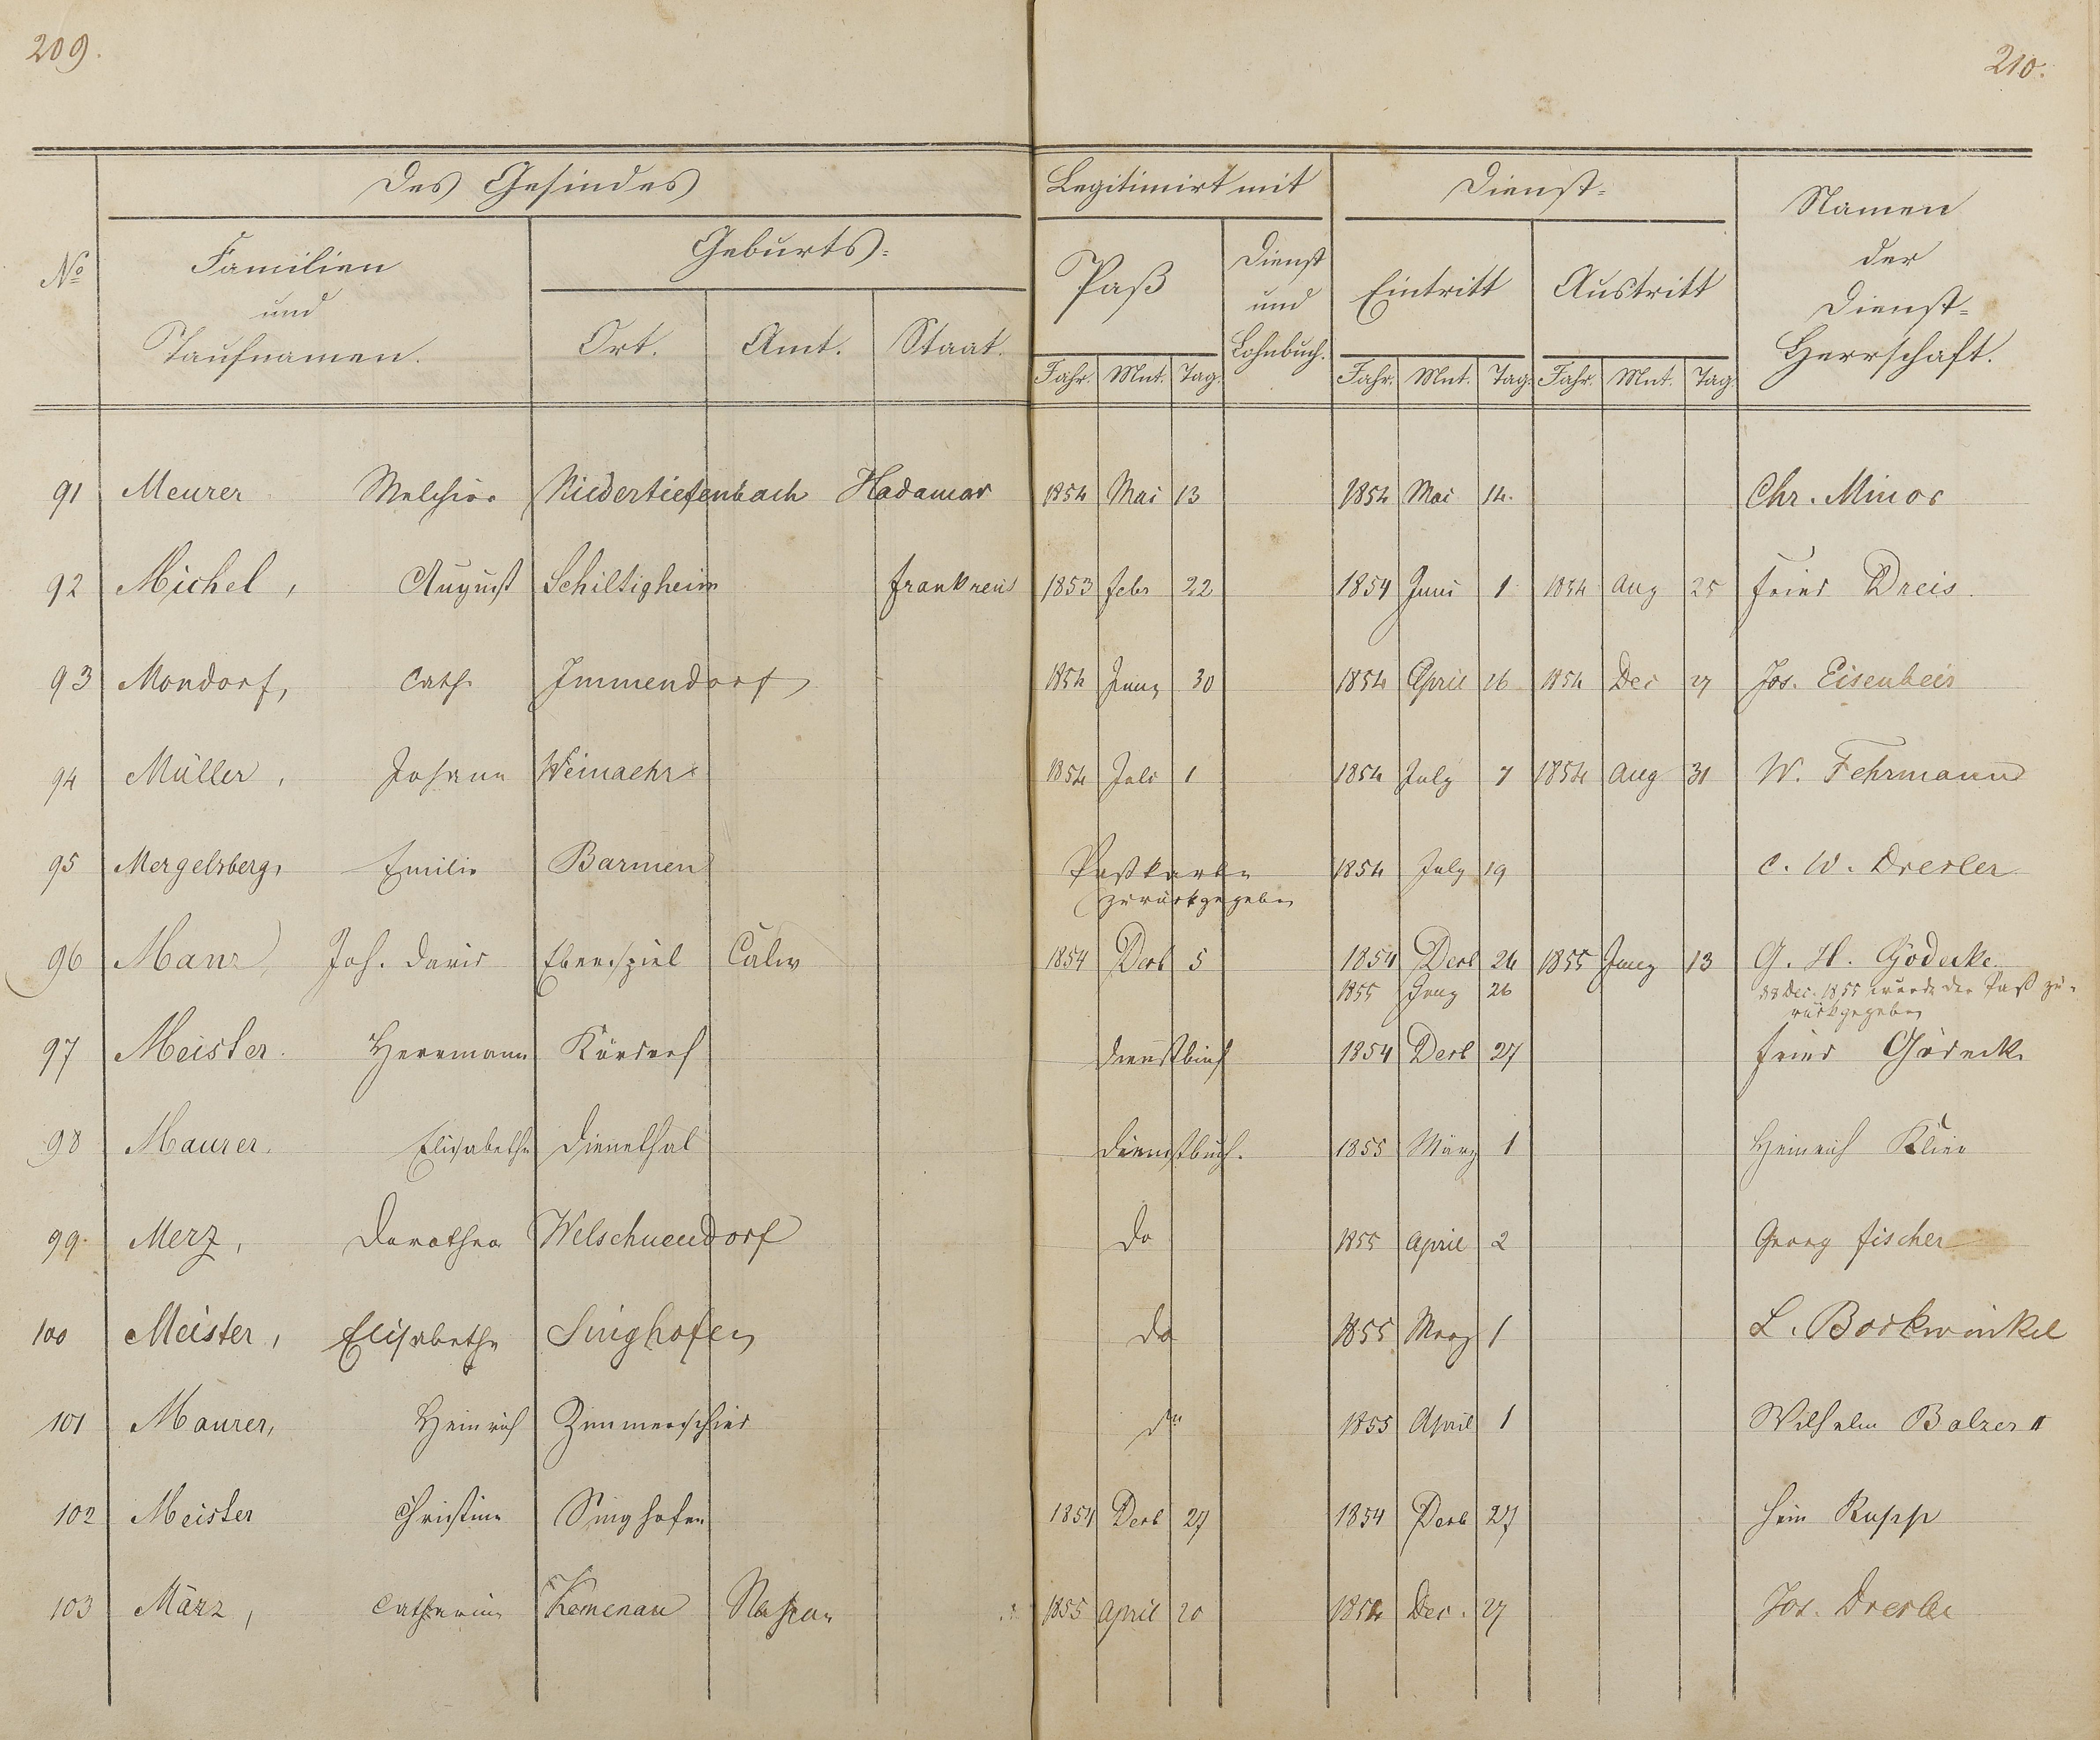 209.
210.
Des Gesindes
Legitimirt mit
Dienst=
Namen der Dienst=Herrschaft.
No
Familien und Taufnamen.
Geburts=
Paß
Dienst und Lohnbuch.
Eintritt
Austritt
Ort.
Amt.
Staat.
Jahr. Mnt. Tag.
Jahr. Mnt. Tag. Jahr. Mnt. Tag.
91 Meurer Melchior Niedertiefenbach Hadamar 1854 Mai 13 1854 Mai 14. Chr. Minor
92 Michel, August Schiltigheim 1853 Febr 22 1854 Juni 1 1854 Aug 25 Fried Dreis
93 Mondorf, Cath. Immendorf 1854 30 1854 April 26 1854 Dec 27 Jos. Eisenbeis
94 Müller, Johann Weinaehr 1854 Juli 1 1854 July 7 1854 Aug 31 W. Fehrmann
95 Mergelsberg, Emilie Barmen Paßkarte 1854 July 19 C. W. Dresler
zurückgegeben
96 Manz, Joh. David Calw 1854 Decb 5 1854 Decb 26 1855 13 G. H. Gödecke
1855 26 Dec. 1855 wurde der Paß zu=
rückgegeben
97 Meister. Herrmann Kördorf Dienstbuch 1854 Decb 27 Fried Gödecke
98 Maurer. Elisabethe Dienethal Dienstbuch. 1855 März 1 Heinrich
99. Merz, Dorothea Welschneudorf do 1855 April 2 Georg Fischer
100 Meister, Elisabethe Singhofen do 1855 März 1 L. Bockwinkel
101 Maurer, Heinrich Zimmerschied do 1855 April 1 Wilhelm Balzer II
102 Meister Christine Singhofen 1854 Decb 27 1854 Decb 27 Hein Rupp
103 März, Catharine Kemenau Nassau 1855 April 20 1854 Dec. 27 Jos. Dresler